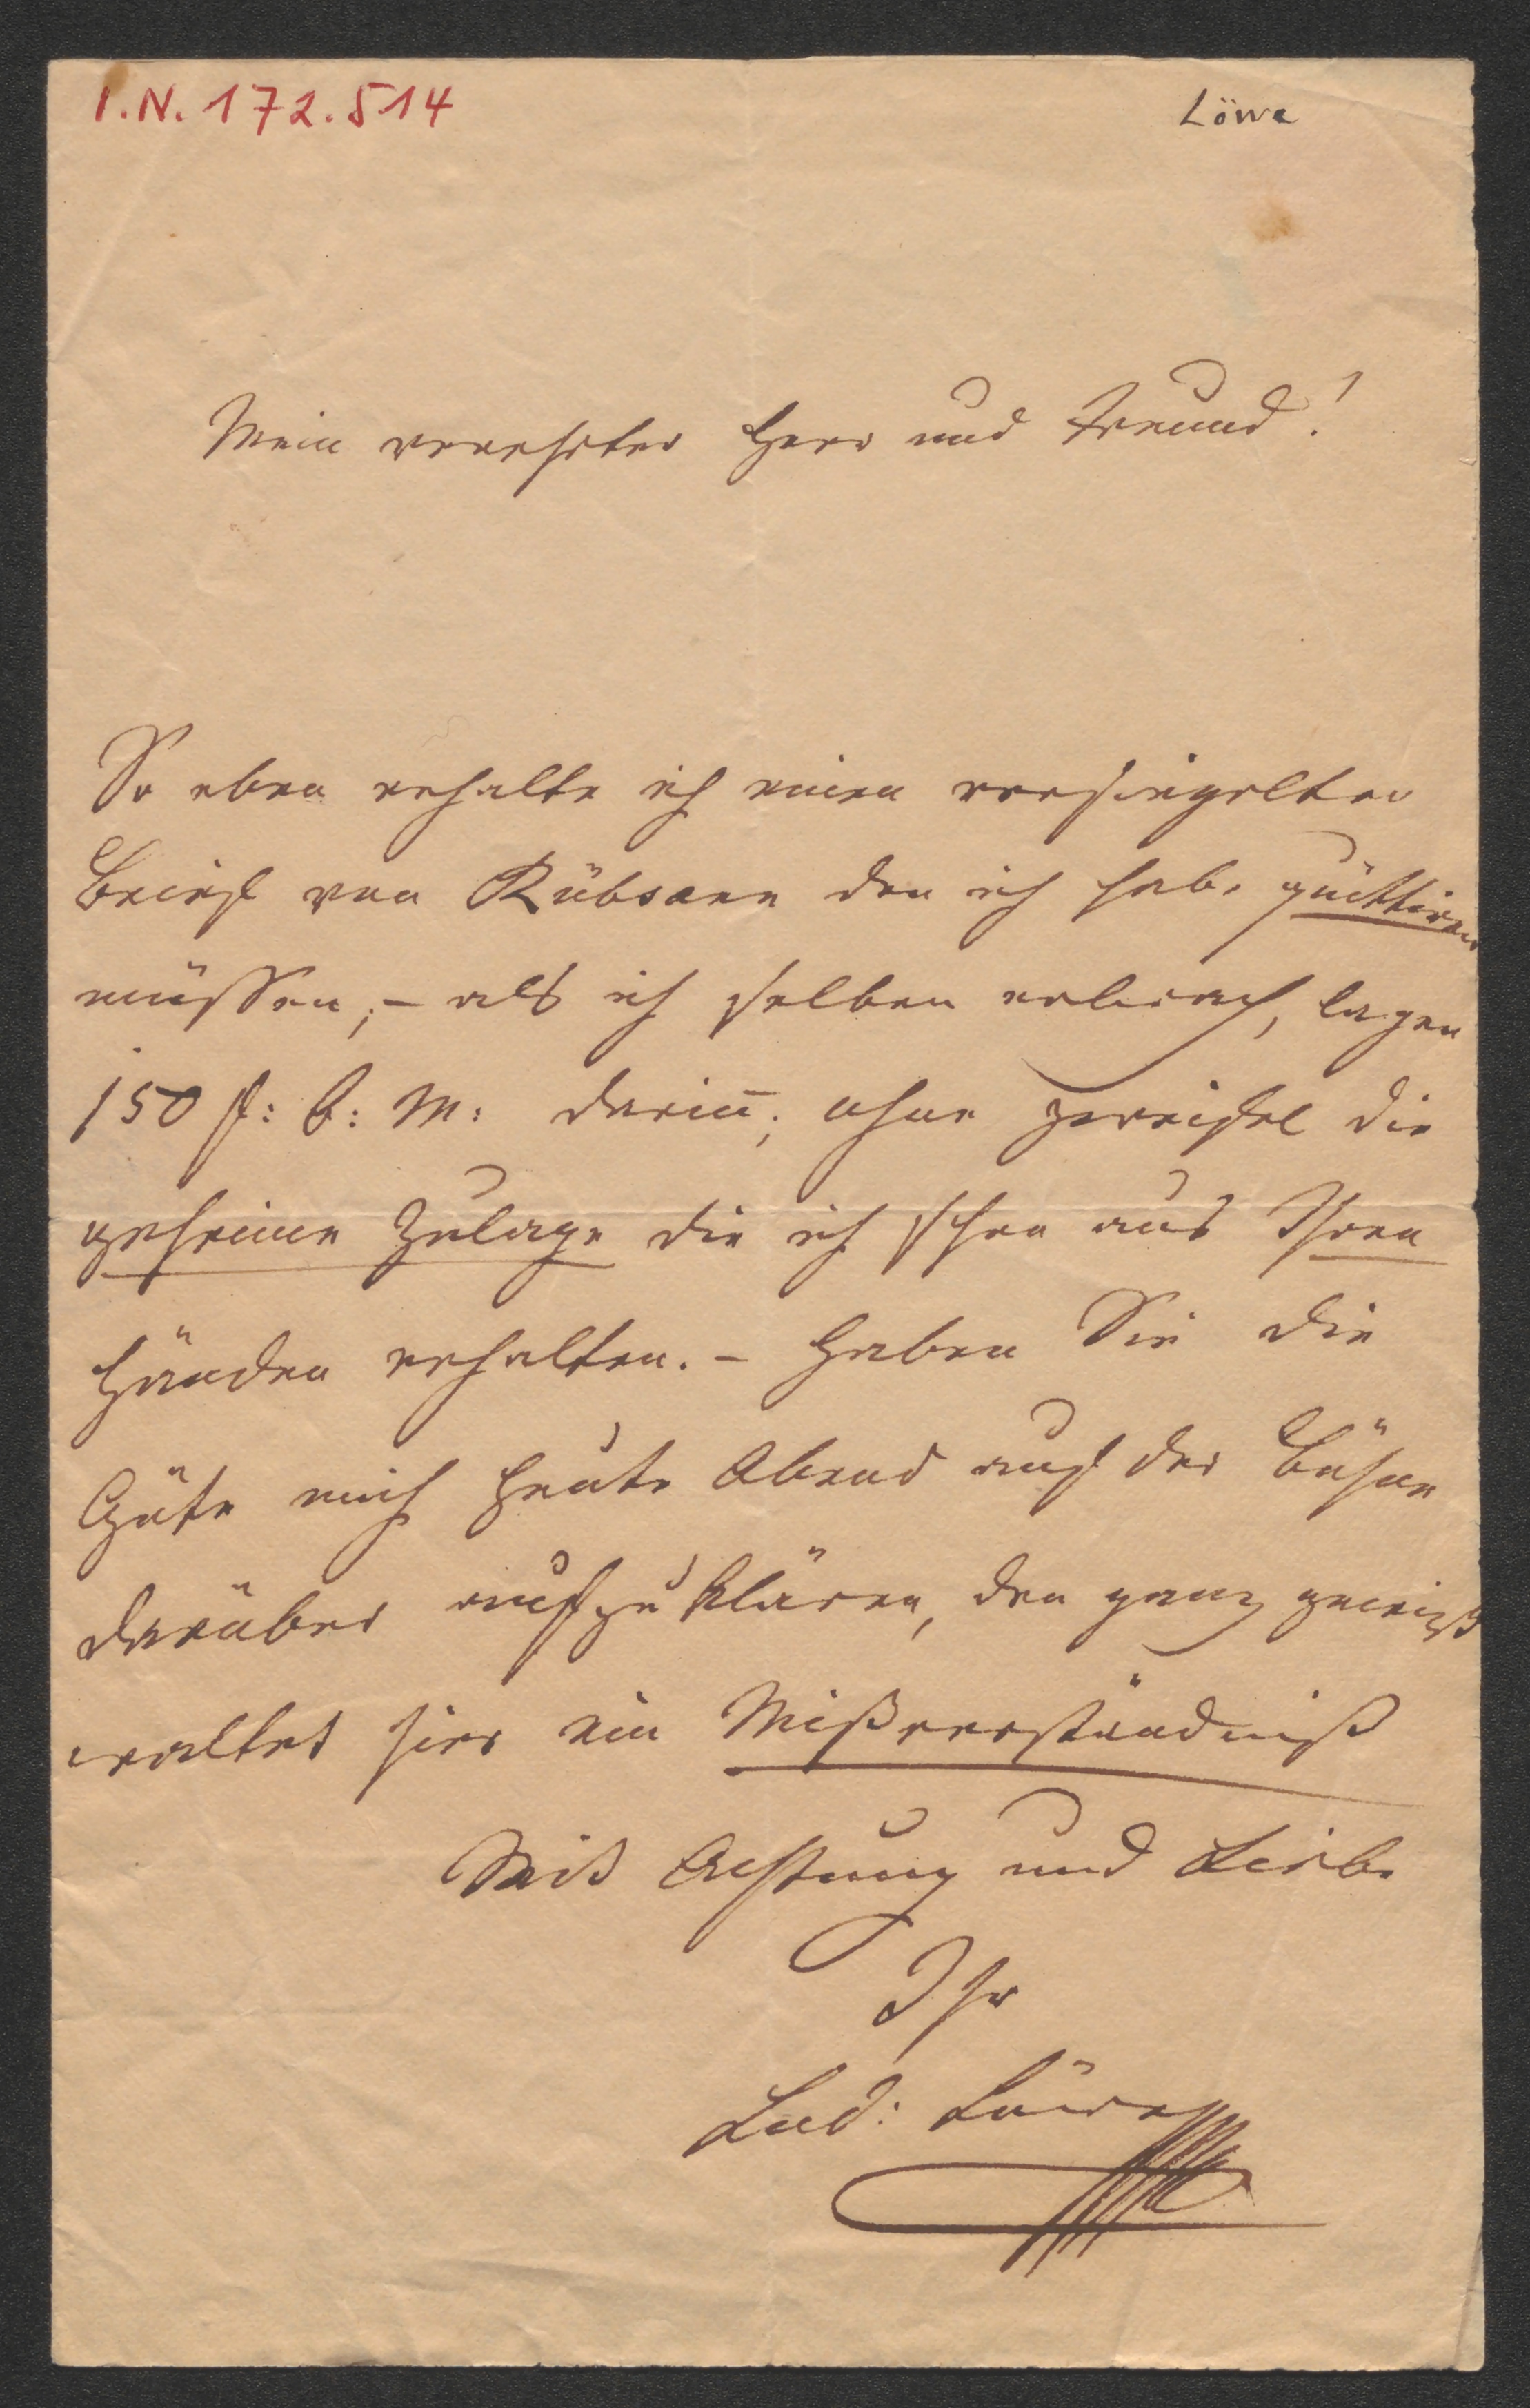 I.N. 172.514
Löwe
Mein verehrter Herr und Freund!
So eben erhalte ich einen versiegelten
Brief von Rübsaen den ich habe quittiren
müssen, – als ich selben erbrach, lagen
150 f: C: M: darin̄; ohne zweifel die
geheime Zulage die ich schon aus Ihren
Händen erhalten. – Haben Sie die
Güte mich heute Abend auf der Bühne
darüber aufzuklären, den ganz gewiß
waltet hier ein Mißverständniß
Mit Achtung und Liebe
Ihr
Lud: Löwe